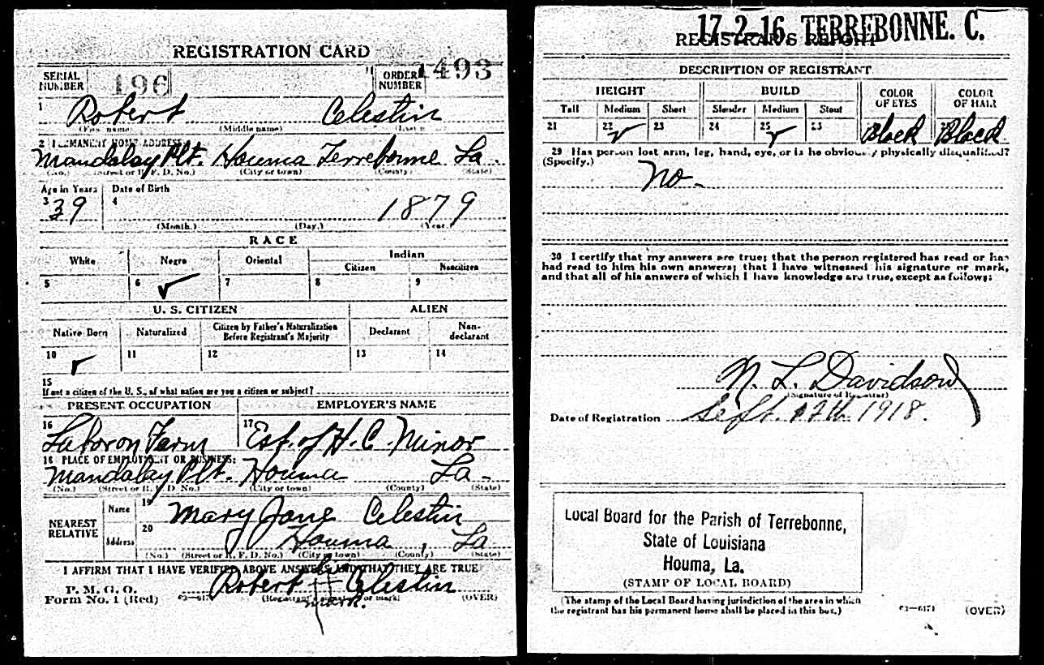 REGISTRATION CARD
SERIAL NUMBER 196 ORDER NUMBER 1493
1 Robert Celestin
(First name) (Middle name) (Last name)
2 PERMANENT HOME ADDRESS:
Mandalay Plt. Houma Terrebonne La.
(No.) (Street or R. F. D. No.) (City or town) (County) (State)
Age in Years Date of Birth
3 39 4 1879
(Month.) (Day.) (Year.)
RACE
White Negro Oriental Indian
Citizen Noncitizen
5 6 ✓ 7 8 9
U. S. CITIZEN ALIEN
Native Born Naturalized Citizen by Father's Naturalization Before Registrant's Majority Declarant Non-declarant
10 ✓ 11 12 13 14
15
If not a citizen of the U. S., of what nation are you a citizen or subject?
PRESENT OCCUPATION EMPLOYER'S NAME
16 Labor on Farm 17 Est. of H. C. Minor
18 PLACE OF EMPLOYMENT OR BUSINESS:
Mandalay Plt. Houma La.
(No.) (Street or R. F. D. No.) (City or town) (County) (State)
NEAREST RELATIVE Name 19 Mary Jane Celestin
Address 20 Houma, La
(No.) (Street or R. F. D. No.) (City or town) (County) (State)
I AFFIRM THAT I HAVE VERIFIED ABOVE ANSWERS AND THAT THEY ARE TRUE
P. M. G. O.
Form No. 1 (Red) Robert Celestin
(Registrant's signature or mark) (OVER)
mark.
17-2-16 TERREBONNE. C.
REGISTRAR'S REPORT
DESCRIPTION OF REGISTRANT
HEIGHT BUILD COLOR OF EYES COLOR OF HAIR
Tall Medium Short Slender Medium Stout
21 22 ✓ 23 24 25 ✓ 23 Black Black
29 Has person lost arm, leg, hand, eye, or is he obviously physically disqualified?
(Specify.) No.
30 I certify that my answers are true; that the person registered has read or has
had read to him his own answers; that I have witnessed his signature or mark,
and that all of his answers of which I have knowledge are true, except as follows:
N. L. Davidson
(Signature of Registrar)
Date of Registration Sept. 12th 1918.
Local Board for the Parish of Terrebonne,
State of Louisiana
Houma, La.
(STAMP OF LOCAL BOARD)
(The stamp of the Local Board having jurisdiction of the area in which
the registrant has his permanent home shall be placed in this box.)
(OVER)